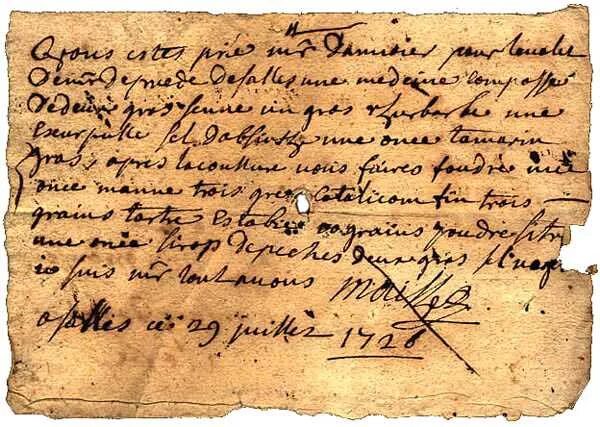 Vous estes prié mr Damidier pour le valet
De mr de pie de de salles une medecine composse
De deux gros senne un gros rhurbarbe une
sel Dabsinthe une once tamarin
gras, apres la coulture vous faires foudre une
once manne trois gros Catalicom fin trois
grains tartre Estabié 20 grains poudre
une once sirop de peches deux gros
je suis mr tout a vous Maille
a salles ce 29 juillet 1726